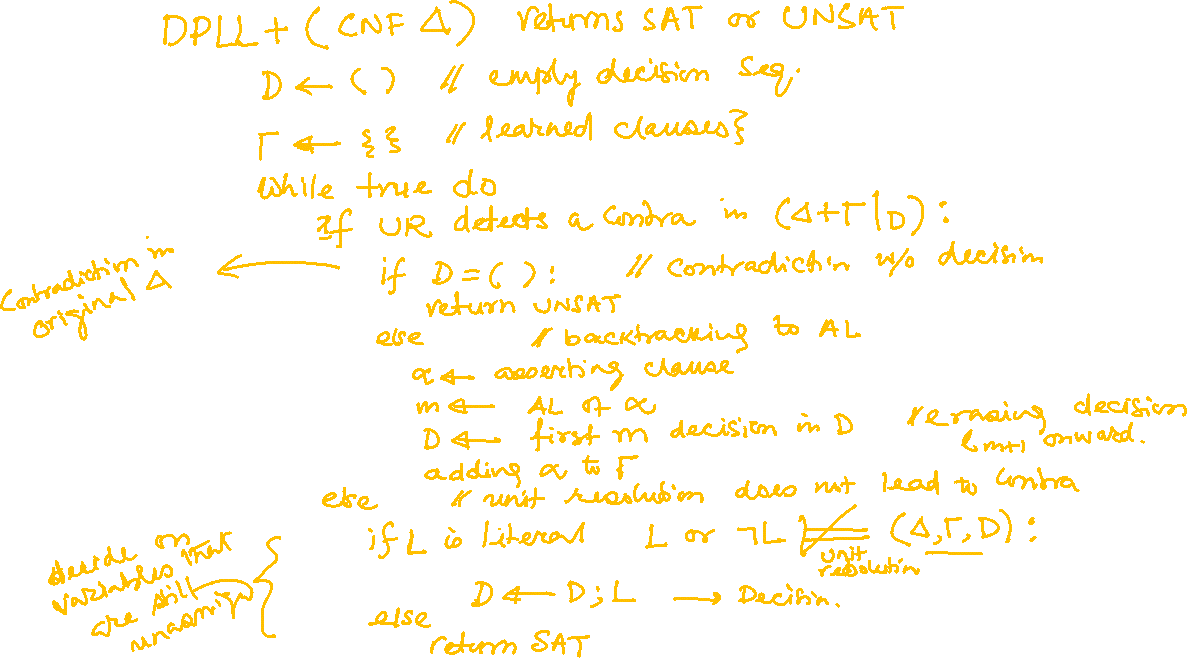 DPLL + (CNF Δ) returns SAT or UNSAT
D ← ( ) // empty decision seq.
Γ ← {} // learned clauses}
while true do
If UR detects a contra in (Δ+Γ|D) :
if D = ( ) : // contradictin w/o decisim
Contradiction in
original Δ
return UNSAT
else // backtracking to AL
α ← asserting clause
m ← AL of α
D ← first m decision in D // erasing decision
ℓm+1 onward.
adding α to Γ
else // unit resolution does not lead to contra
if L is literal L or ¬L (Δ,Γ,D) :
unit
resolution
decide on
variables that
are still
unassign
D ← D ; L → Decisin.
else
return SAT